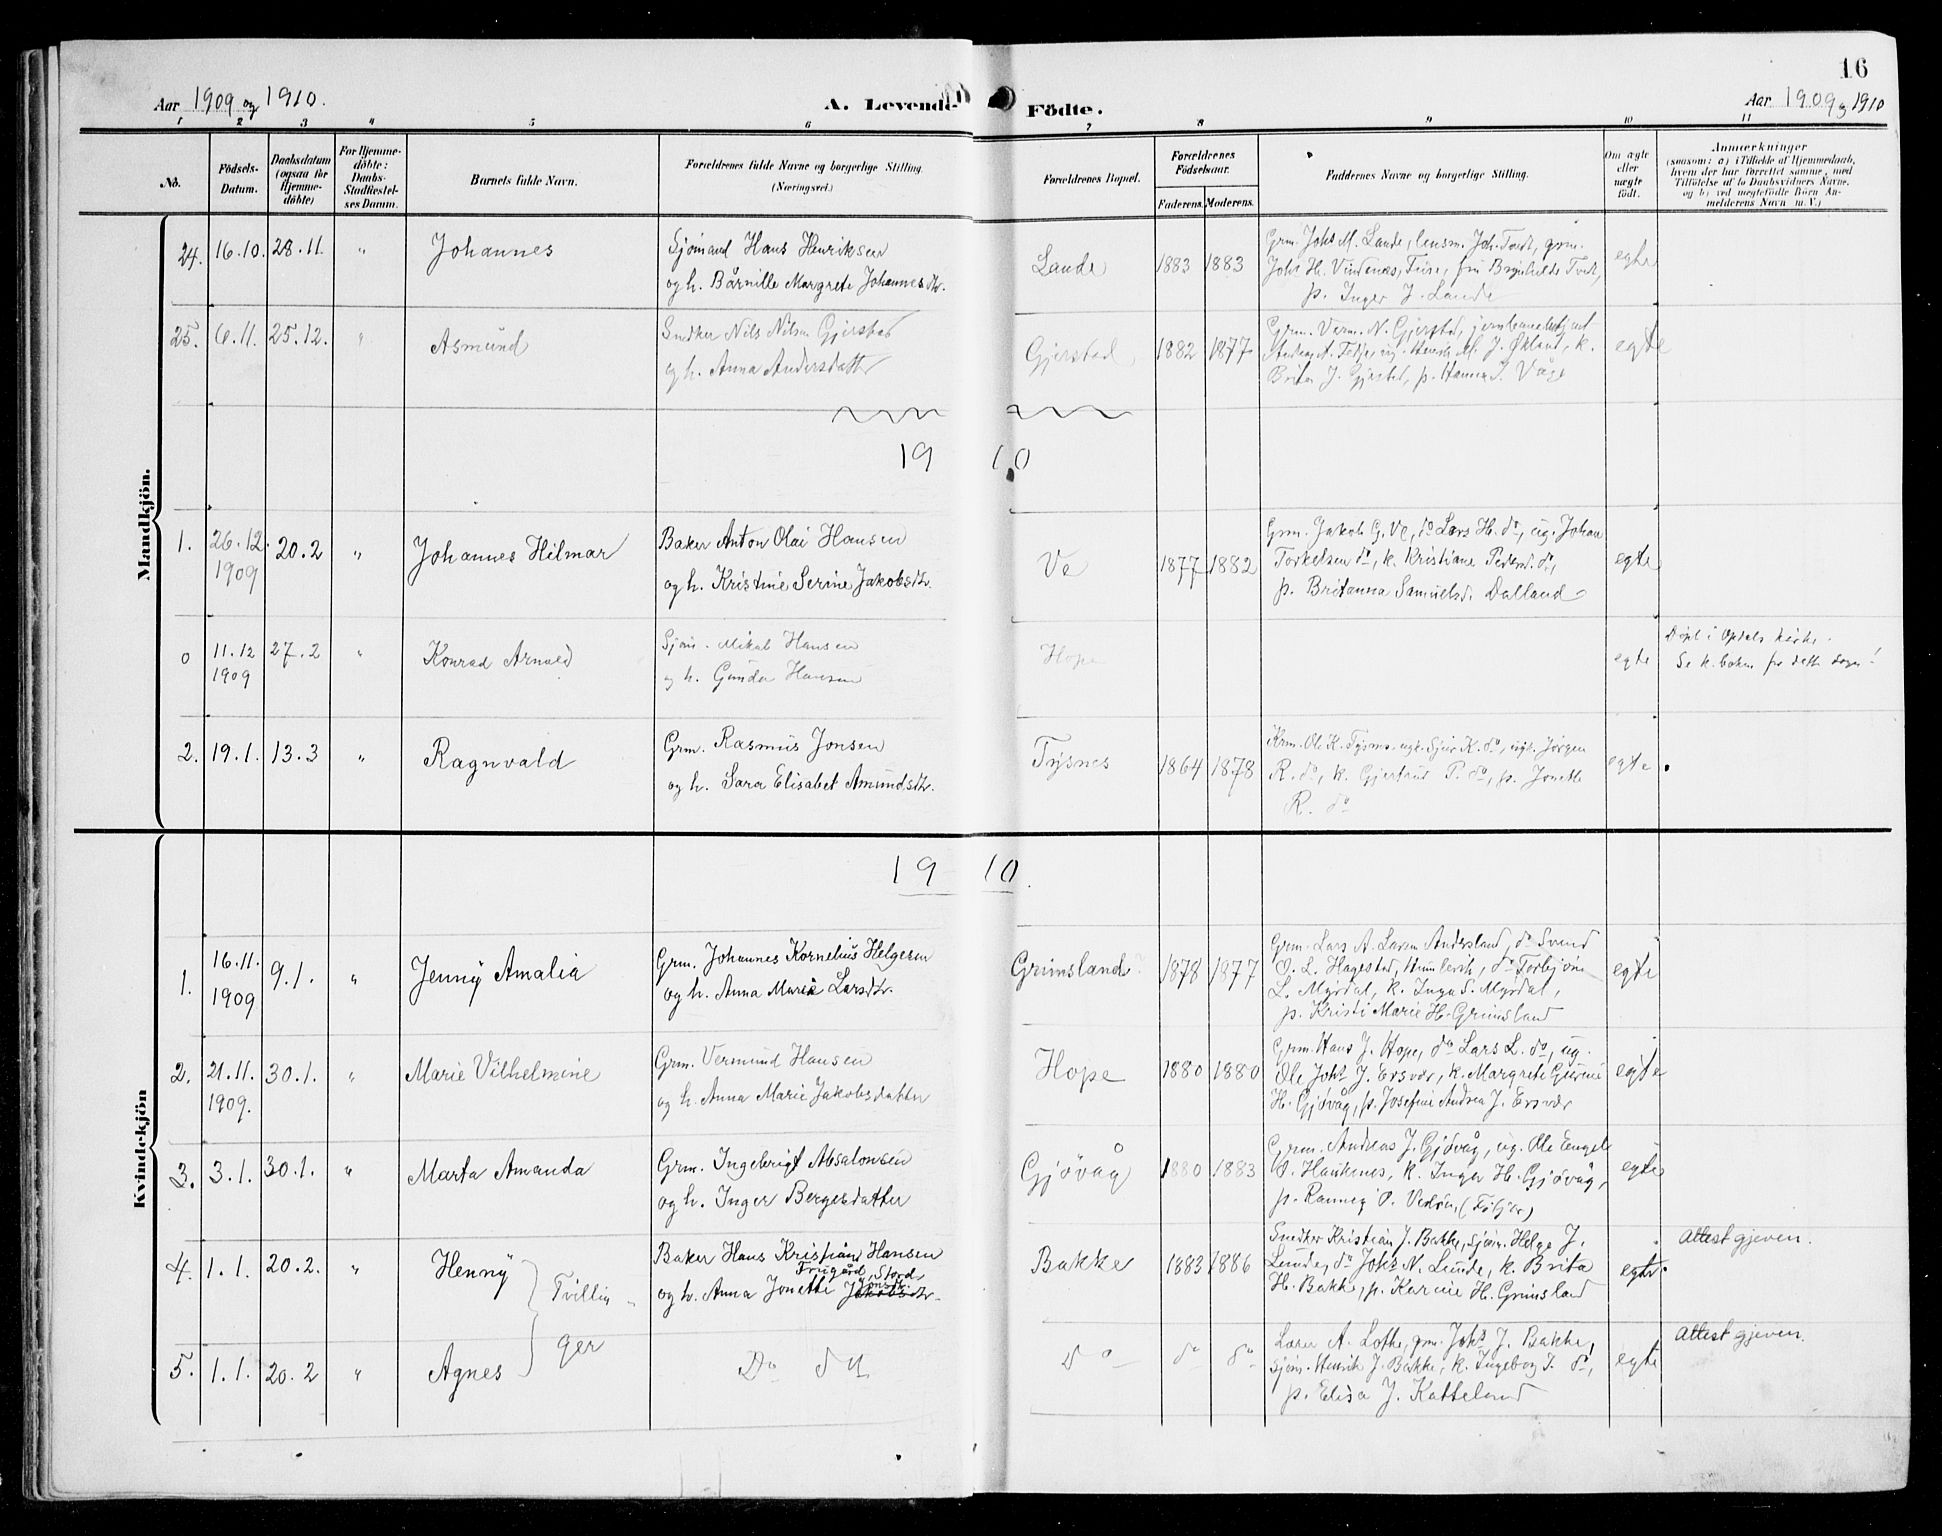 16
Aar 1909 og 1910.
A. Levende Födte.
Aar 1909 og 1910
1 2 3 4 5 6 7 8 9 10 11
No.
Födsels-
Datum.
Daabsdatum
(ogsaa for
Hjemme-
döbte)
For Hjemme-
döbte:
Daabs-
Stadfæstel-
ses Datum.
Barnets fulde Navn.
Forældrenes fulde Navne og borgerlige Stilling
(Næringsvei.)
Forældrenes Bopæl.
Forældrenes
Födselsaar.
Faderens. Moderens.
Faddernes Navne og borgerlige Stilling.
Om ægte
eller
uægte
födt.
Anmærkninger
(saasom: a) i Tilfælde af Hjemmedaab,
hvem der har forrettet samme, med
Tilföielse af to Daabsvidners Navne,
og b) ved uegtefödte Börn An-
melderens Navn m. V.)
Mandkjön.
24. 16.10. 28.11. " Johannes
Sjömand Hans Henriksen
og h. Bårnille Margrete Johannesdtr.
Lande 1883 1883
Grm. Johs M. Lande, lensm. Joh. Tvedt, grm.
Johs H. Vindenes, Tuse, fru Brynhilde Tvedt,
p. Inger J. Lande
egte
25. 6.11. 25.12. " Asmund
Snedker Nils Nilsen Gjerstad
og h. Anna Andersdatter
Gjerstad 1882 1877
Grm. Værm. N. Gjerstad, jernbanebetjent
Andreas A. Fedje, ug. Henrik M. J. Økland, k.
Brita J. Gjerstad, p. Hanna J. Våge
egte
1910
1. 26.12. 1909 20.2 " Johannes Hilmar
Baker Anton Olai Hansen
og h. Kristine Serine Jakobsdtr.
Ve 1877 1882
Grm. Jakob G. Ve, do Lars H. do, ug. Johan
Torkelsen do, k. Kristiane Pedersd. do,
p. Britanna Samuelsd. Dalland
egte
0 11.12 1909 27.2 " Konrad Arnold
Sjöm. Mikal Hansen
og h. Gunda Hansen
Hope
egte
Döpt i Opdals kirke.
Se k.boken for dette sogn!
2. 19.1. 13.3 " Ragnvald
Grm. Rasmus Jonsen
og h. Sara Elisabet Amundsdtr.
Tysnes 1864 1878
Krm. Ole K. Tysnes, ugk. Sjur K. do, ugt. Jørgen
R. do, k. Gjertrud P. do, p. Jonette
R. do
egte
Kvindekjön
1910.
1. 16.11. 1909 9.1. " Jenny Amalia
Grm. Johannes Kornelius Helgesen
og h. Anna Marie Larsdtr.
Grimsland? 1878 1877
Grm. Lars A. Larsen Andersland, do Svend
O. L. Hagestad, Humlevik, do Torbjörn
L. Myrdal, k. Inga S. Myrdal,
p. Kristi Marie H. Grimsland
egte
2. 21.11. 1909. 30.1. " Marie Vilhelmine
Grm. Vermund Hansen
og h. Anna Marie Jakobsdatter
Hope 1880 1880
Grm. Hans J. Hope, do Lars L. do, ug.
Ole Johs J. Ersvær, k. Margrete Gurine
H. Gjövåg, p. Josefine Andrea J. Ersvær
egte
3. 3.1. 30.1. " Marta Amanda
Grm. Ingebrigt Absalonsen
og h. Inger Bergesdatter
Gjövåg 1880 1883
Grm. Andreas J. Gjövåg, ug. Ole Engel
O. Haukenes, k. Inger H. Gjövåg,
p. Ranneg O. Vedöen, (Fitjar)
egte
4. 1.1. 20.2. " Henny
Tvillin
Baker Hans Kristian Hansen
Frugård, Stord
og h. Anna Jonette Jakobsdtr. Jonsdtr.
Bakke 1883 1886
Snedker Kristian J. Bakke, sjöm. Helge J.
Lunde, do Johs N. Lunde, k. Brita
H. Bakke, p. Karine H. Grimsland
egte.
Attest gjeven.
5. 1.1. 20.2 " Agnes
ger
Do do
Do do do
Lærer A. Lothe, grm. Johs J. Bakke,
Sjöm. Henrik J. Bakke, k. Ingeborg J. do,
p. Elisa J. Katteland
egte
Attest gjeven.